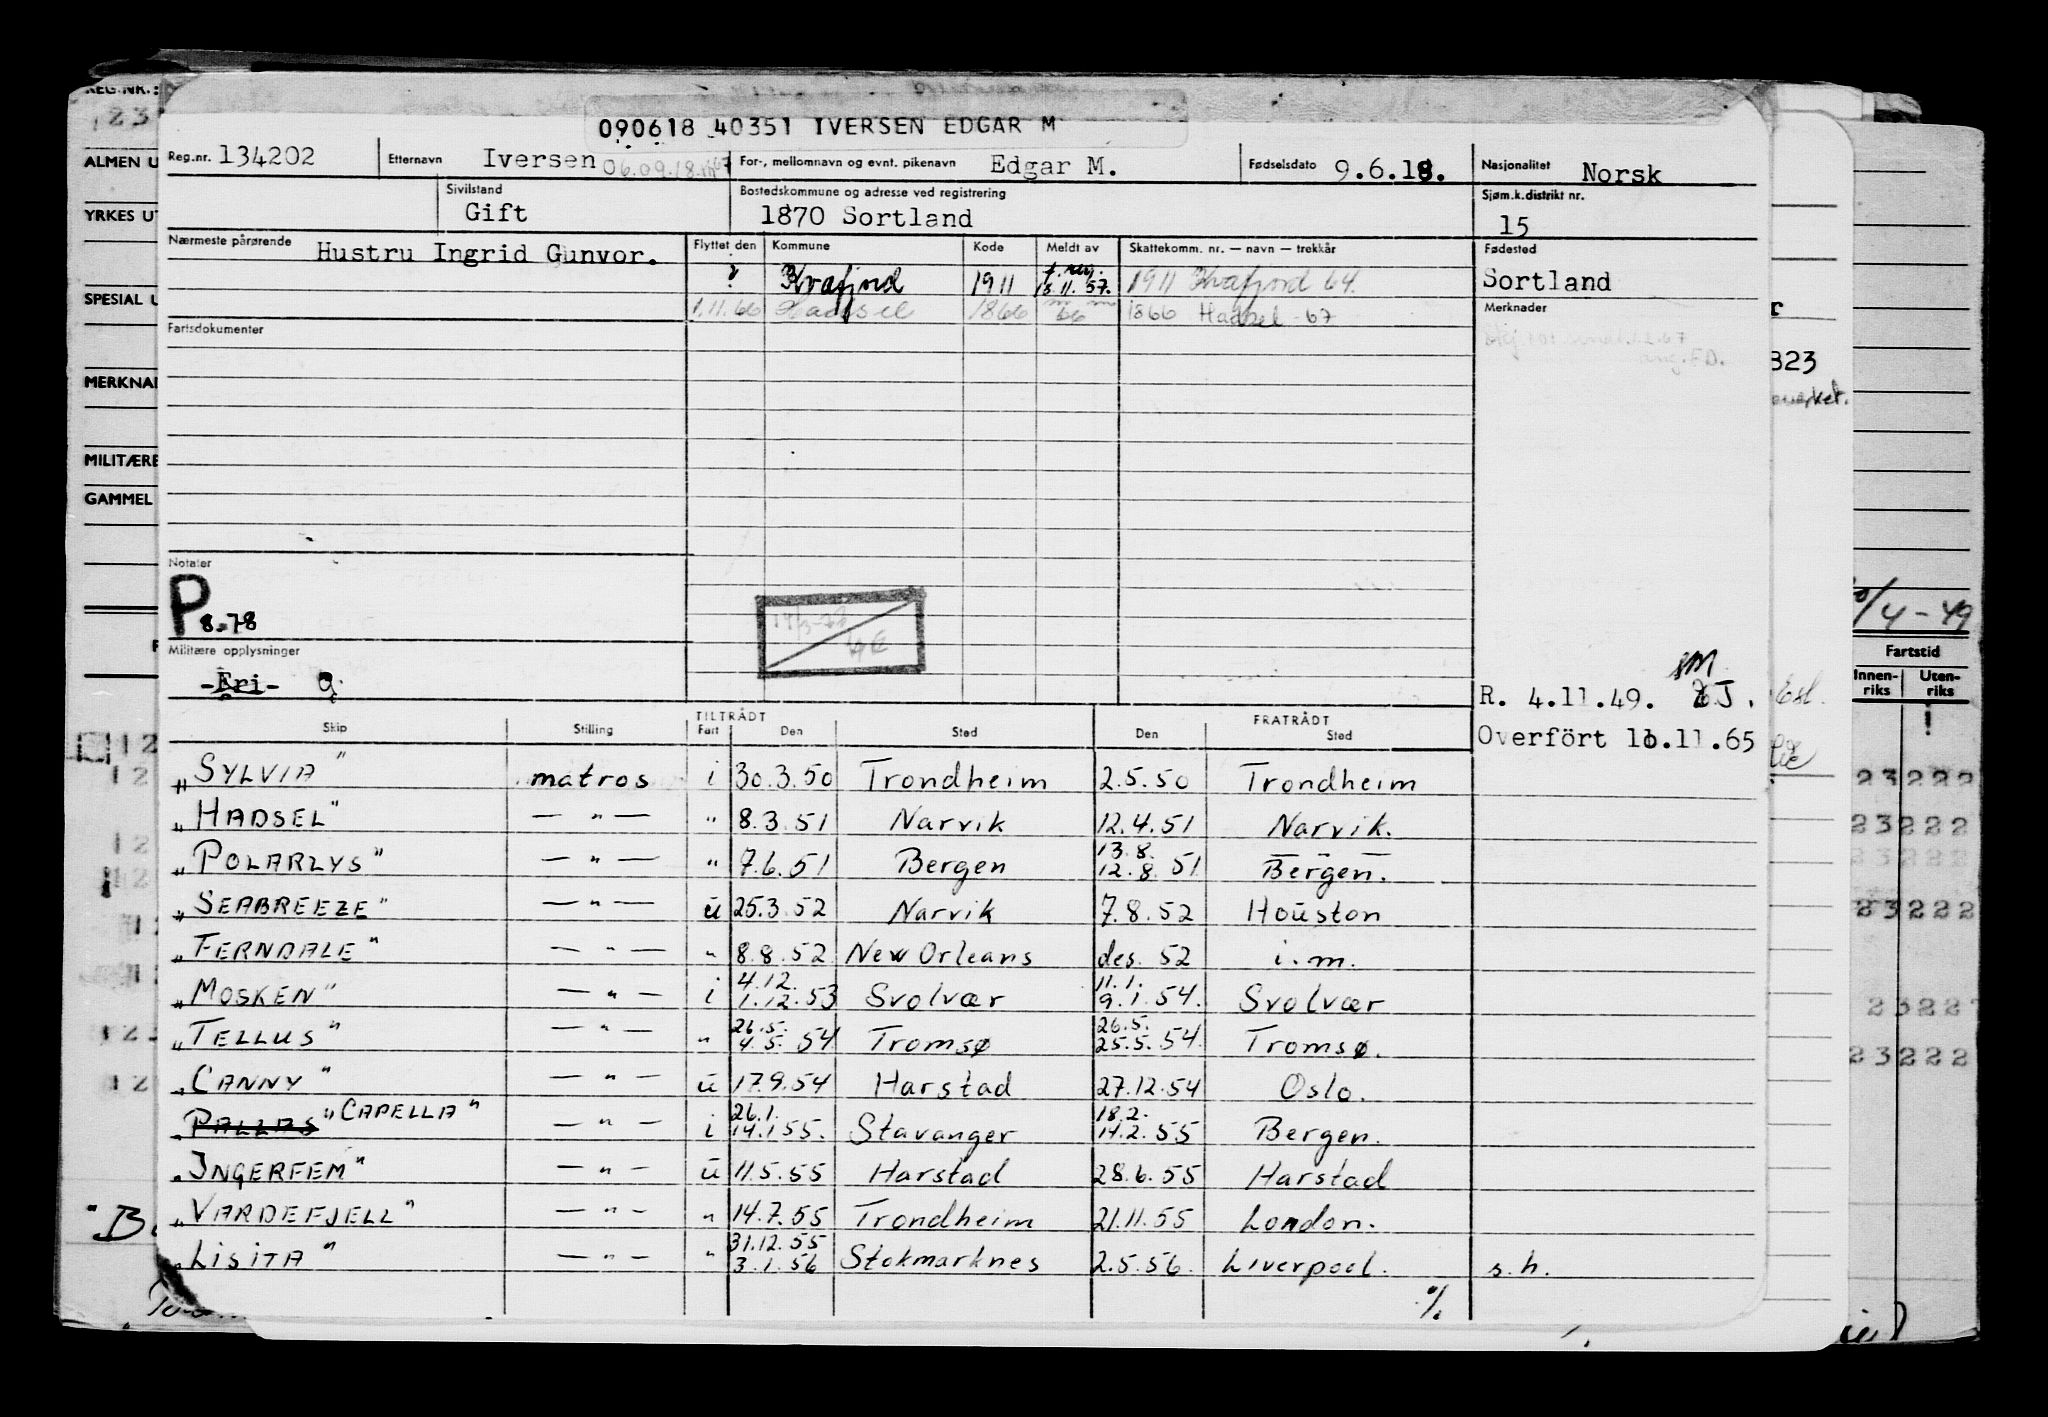 090618 40351 IVERSEN EDGAR M
Reg.nr. 134202 Etternavn Iversen 06.09.18. For-, mellomnavn og evnt. pikenavn Edgar M. Fødselsdato 9.6.18. Nasjonalitet Norsk
Sivilstand Gift Bostedskommune og adresse ved registrering 1870 Sortland Sjøm.k.distrikt nr. 15
Nærmeste pårørende Hustru Ingrid Gunvor. Flyttet den Kommune Kode Meldt av Skattekomm. nr. — navn — trekkår Fødested
? Kvæfjord 1911 15.11.57. 1911 Kvæfjord 64. Sortland
1.11.66 Hadsel 1866 66 1866 Hadsel -67 Merknader
Fartsdokumenter
Notater
P 8.78
Militære opplysninger
-Fri-
R. 4.11.49. J.
Overført 10.11.65
Skip Stilling TILTRÅDT Fart Den Sted FRATRÅDT Den Sted
„SYLVIA" matros i 30.3.50 Trondheim 2.5.50 Trondheim
„HADSEL" — " — " 8.3.51 Narvik 12.4.51 Narvik.
„POLARLYS" — " — " 7.6.51 Bergen 13.8. 12.8.51 Bergen.
„SEABREEZE" — " — u 25.3.52 Narvik 7.8.52 Houston
„FERNDALE" — " — " 8.8.52 New Orleans des. 52 i.m.
„MOSKEN" — " — i 4.12. 1.12.53 Svolvær 11.1. 9.1.54. Svolvær
„TELLUS" — " — " 26.5. 4.5.54 Tromsø 26.5. 25.5.54. Tromsø.
„CANNY" — " — u 17.9.54 Harstad 27.12.54 Oslo.
„PALLAS "CAPELLA" — " — i 26.1. 14.1.55. Stavanger 18.2. 14.2.55 Bergen.
„INGERFEM" — " — u 11.5.55 Harstad 28.6.55 Harstad
„VARDEFJELL" — " — " 14.7.55 Trondheim 21.11.55 London.
„LISITA" — " — " 31.12.55 3.1.56 Stokmarknes 2.5.56. Liverpool. s.h.
REG.NR.:
ALMEN U
YRKES UT
SPESIAL U
MERKNA
MILITÆRE
GAMMEL
823
/4-49
Fartstid
Innen-riks Uten-riks
23222
23222
23222
23222
23222